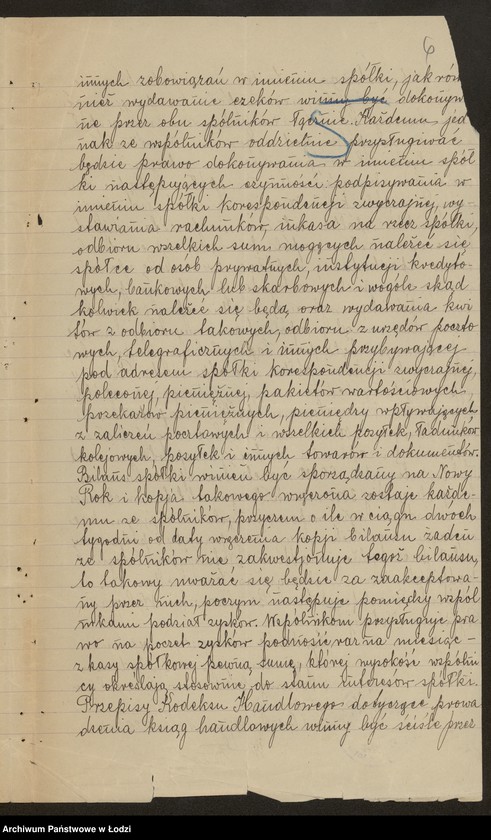 6
innych zobowiązań w imieniu spółki, jak rów
nież wydawanie czeków winny być dokonyw
ne przez obu spólników łącznie. Każdemu jed
nak ze wspólników oddzielnie przysługiwać
będzie prawo dokonywania w imieniu spół
ki następujących czynności podpisywania w
imieniu spółki korespondencji zwyczajnej, wy-
stawiania rachunków, inkasa na rzecz spółki,
odbioru wszelkich sum mogących należeć się
spółce od osób prywatnych, instytucji kredyto-
wych, bankowych lub skarbowych i wogóle skąd
kolwiek należeć się będą oraz wydawania kwi
tów z odbioru takowych, odbioru z urzędów poczto
wych, telegraficznych i innych przybywającej
pod adresem spółki korespondencji zwyczajnej,
poleconej, pieniężnej, pakietów wartościowych,
przekazów pieniężnych, pieniędzy wpływających
z zaliczeń pocztowych i wszelkich posyłek, ładunków
kolejowych, posyłek i innych towarów i dokumentów.
Bilans spółki winien być sporządzany na Nowy
Rok i kopja takowego wręczona zostaje każde-
mu ze spólników, przyczem o ile w ciągu dwóch
tygodni od daty wręczenia kopji bilansu żaden
ze spólników nie zakwestjonuje tegoż bilansu,
to takowy uważać się będzie za zaakceptowa-
ny przez nich, poczym następuje pomiędzy wspól
nikami podział zysków. Wspólnikom przysługuje pra
wo na poczet zysków podnosić raz na miesiąc -
z kasy spółkowej pewną sumę, której wysokość wspólni
cy określają stosownie do stanu interesów spółki.
Przepisy Kodeksu Handlowego dotyczące prowa
dzenia ksiąg handlowych winny być ściśle prze
Archiwum Państwowe w Łodzi